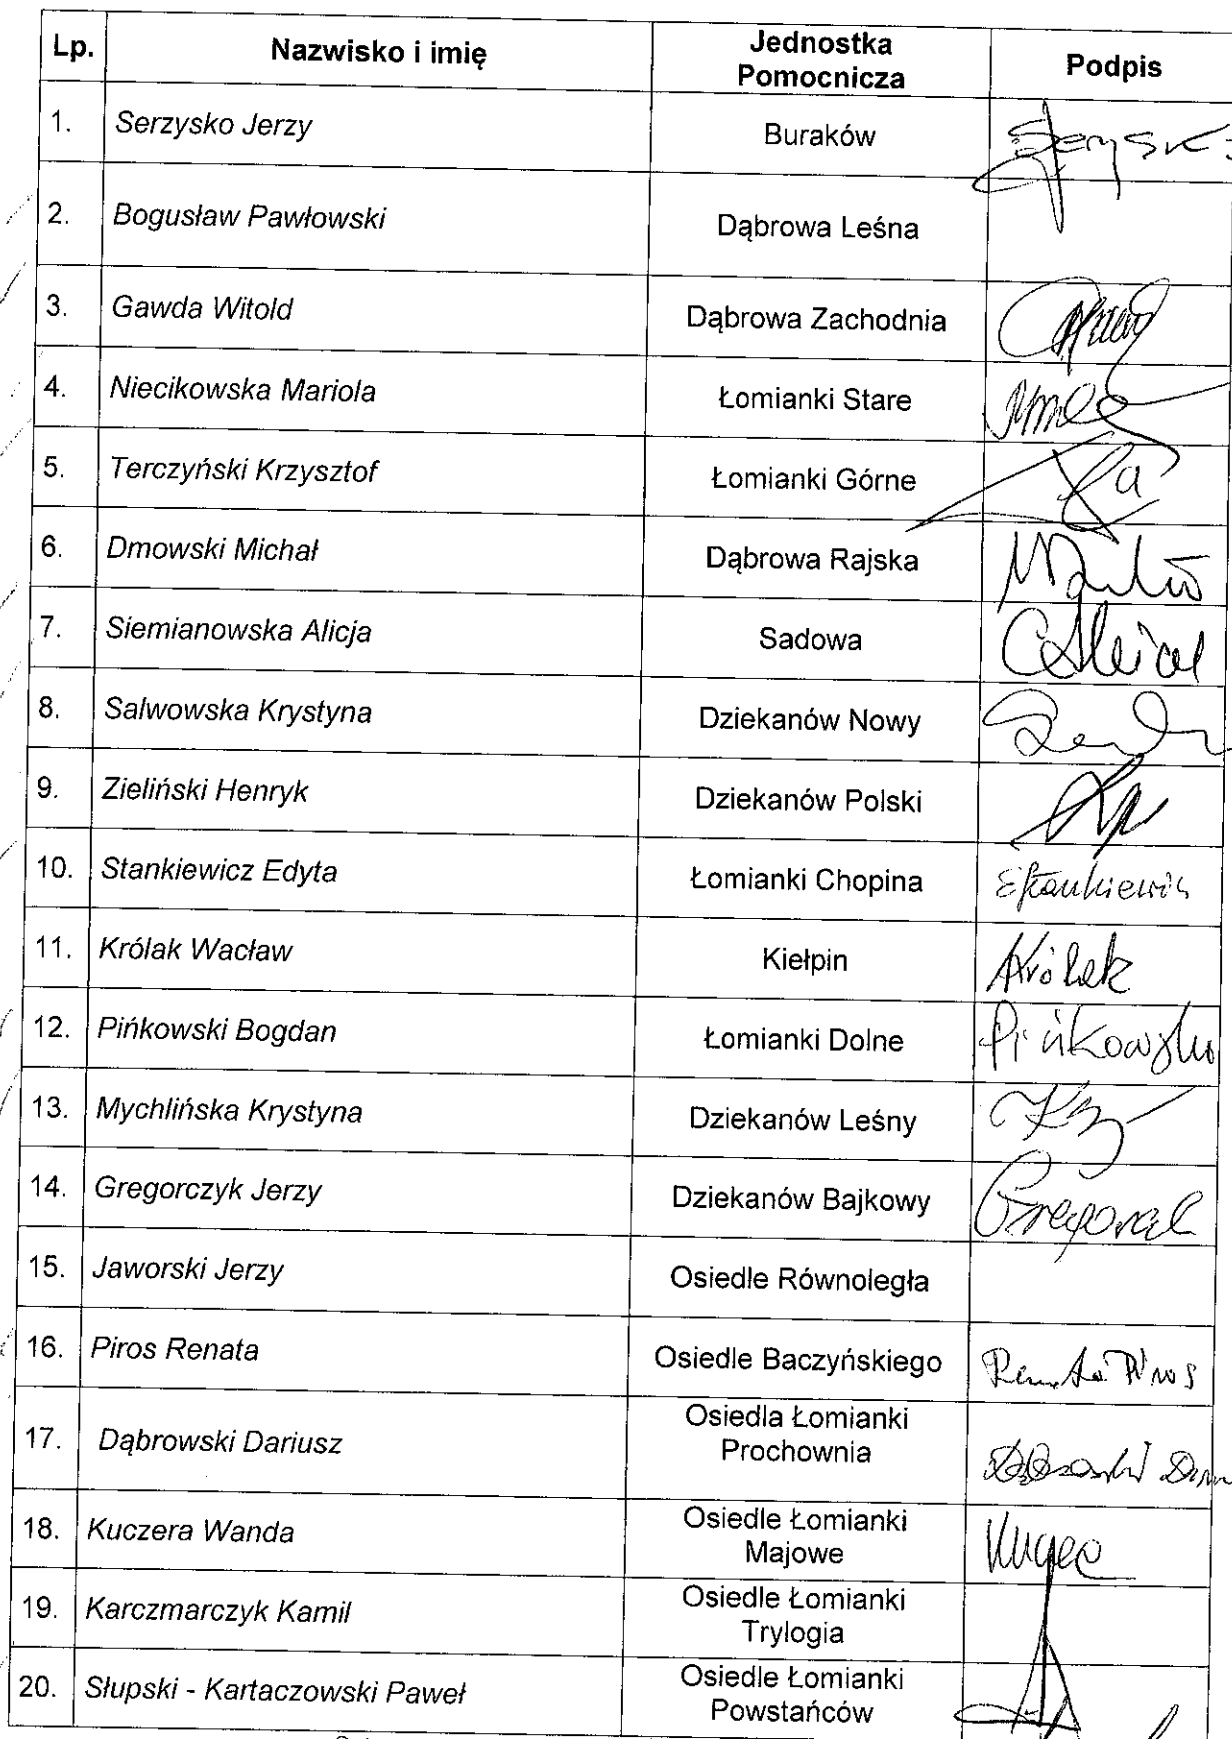 Lp. Nazwisko i imię Jednostka Pomocnicza Podpis
1. Serzysko Jerzy Buraków
2. Bogusław Pawłowski Dąbrowa Leśna
3. Gawda Witold Dąbrowa Zachodnia
4. Niecikowska Mariola Łomianki Stare
5. Terczyński Krzysztof Łomianki Górne
6. Dmowski Michał Dąbrowa Rajska
7. Siemianowska Alicja Sadowa
8. Salwowska Krystyna Dziekanów Nowy
9. Zieliński Henryk Dziekanów Polski
10. Stankiewicz Edyta Łomianki Chopina EStankiewicz
11. Królak Wacław Kiełpin Królak
12. Pińkowski Bogdan Łomianki Dolne Pińkowski
13. Mychlińska Krystyna Dziekanów Leśny
14. Gregorczyk Jerzy Dziekanów Bajkowy
15. Jaworski Jerzy Osiedle Równoległa
16. Piros Renata Osiedle Baczyńskiego Renata Piros
17. Dąbrowski Dariusz Osiedla Łomianki Prochownia
18. Kuczera Wanda Osiedle Łomianki Majowe
19. Karczmarczyk Kamil Osiedle Łomianki Trylogia
20. Słupski - Kartaczowski Paweł Osiedle Łomianki Powstańców